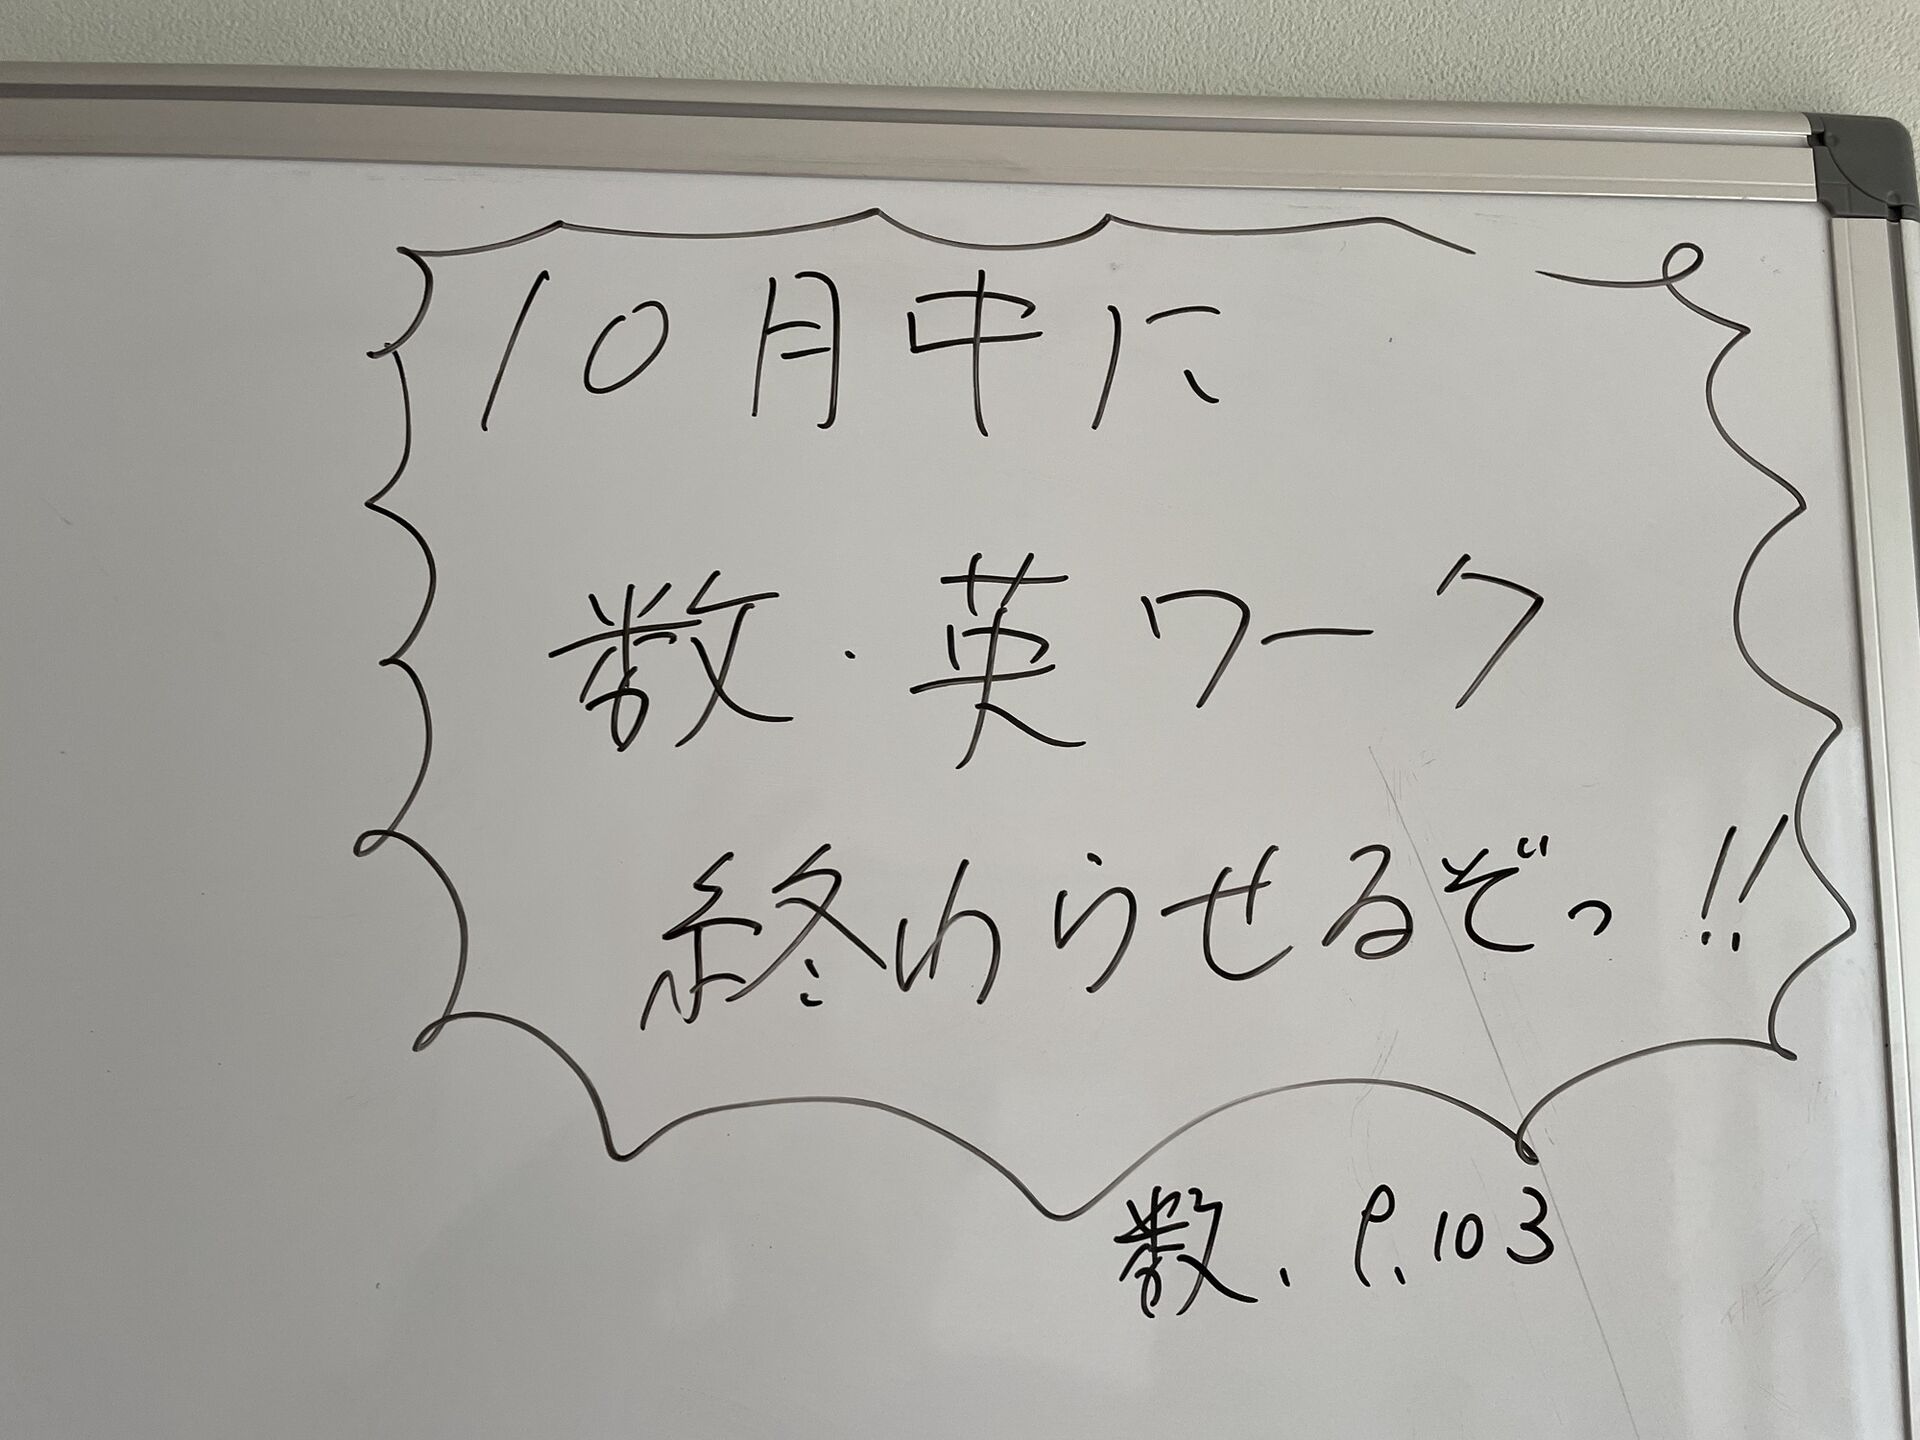 10月中に
数・英ワーク
終わらせるぞっ!!
数. P.103